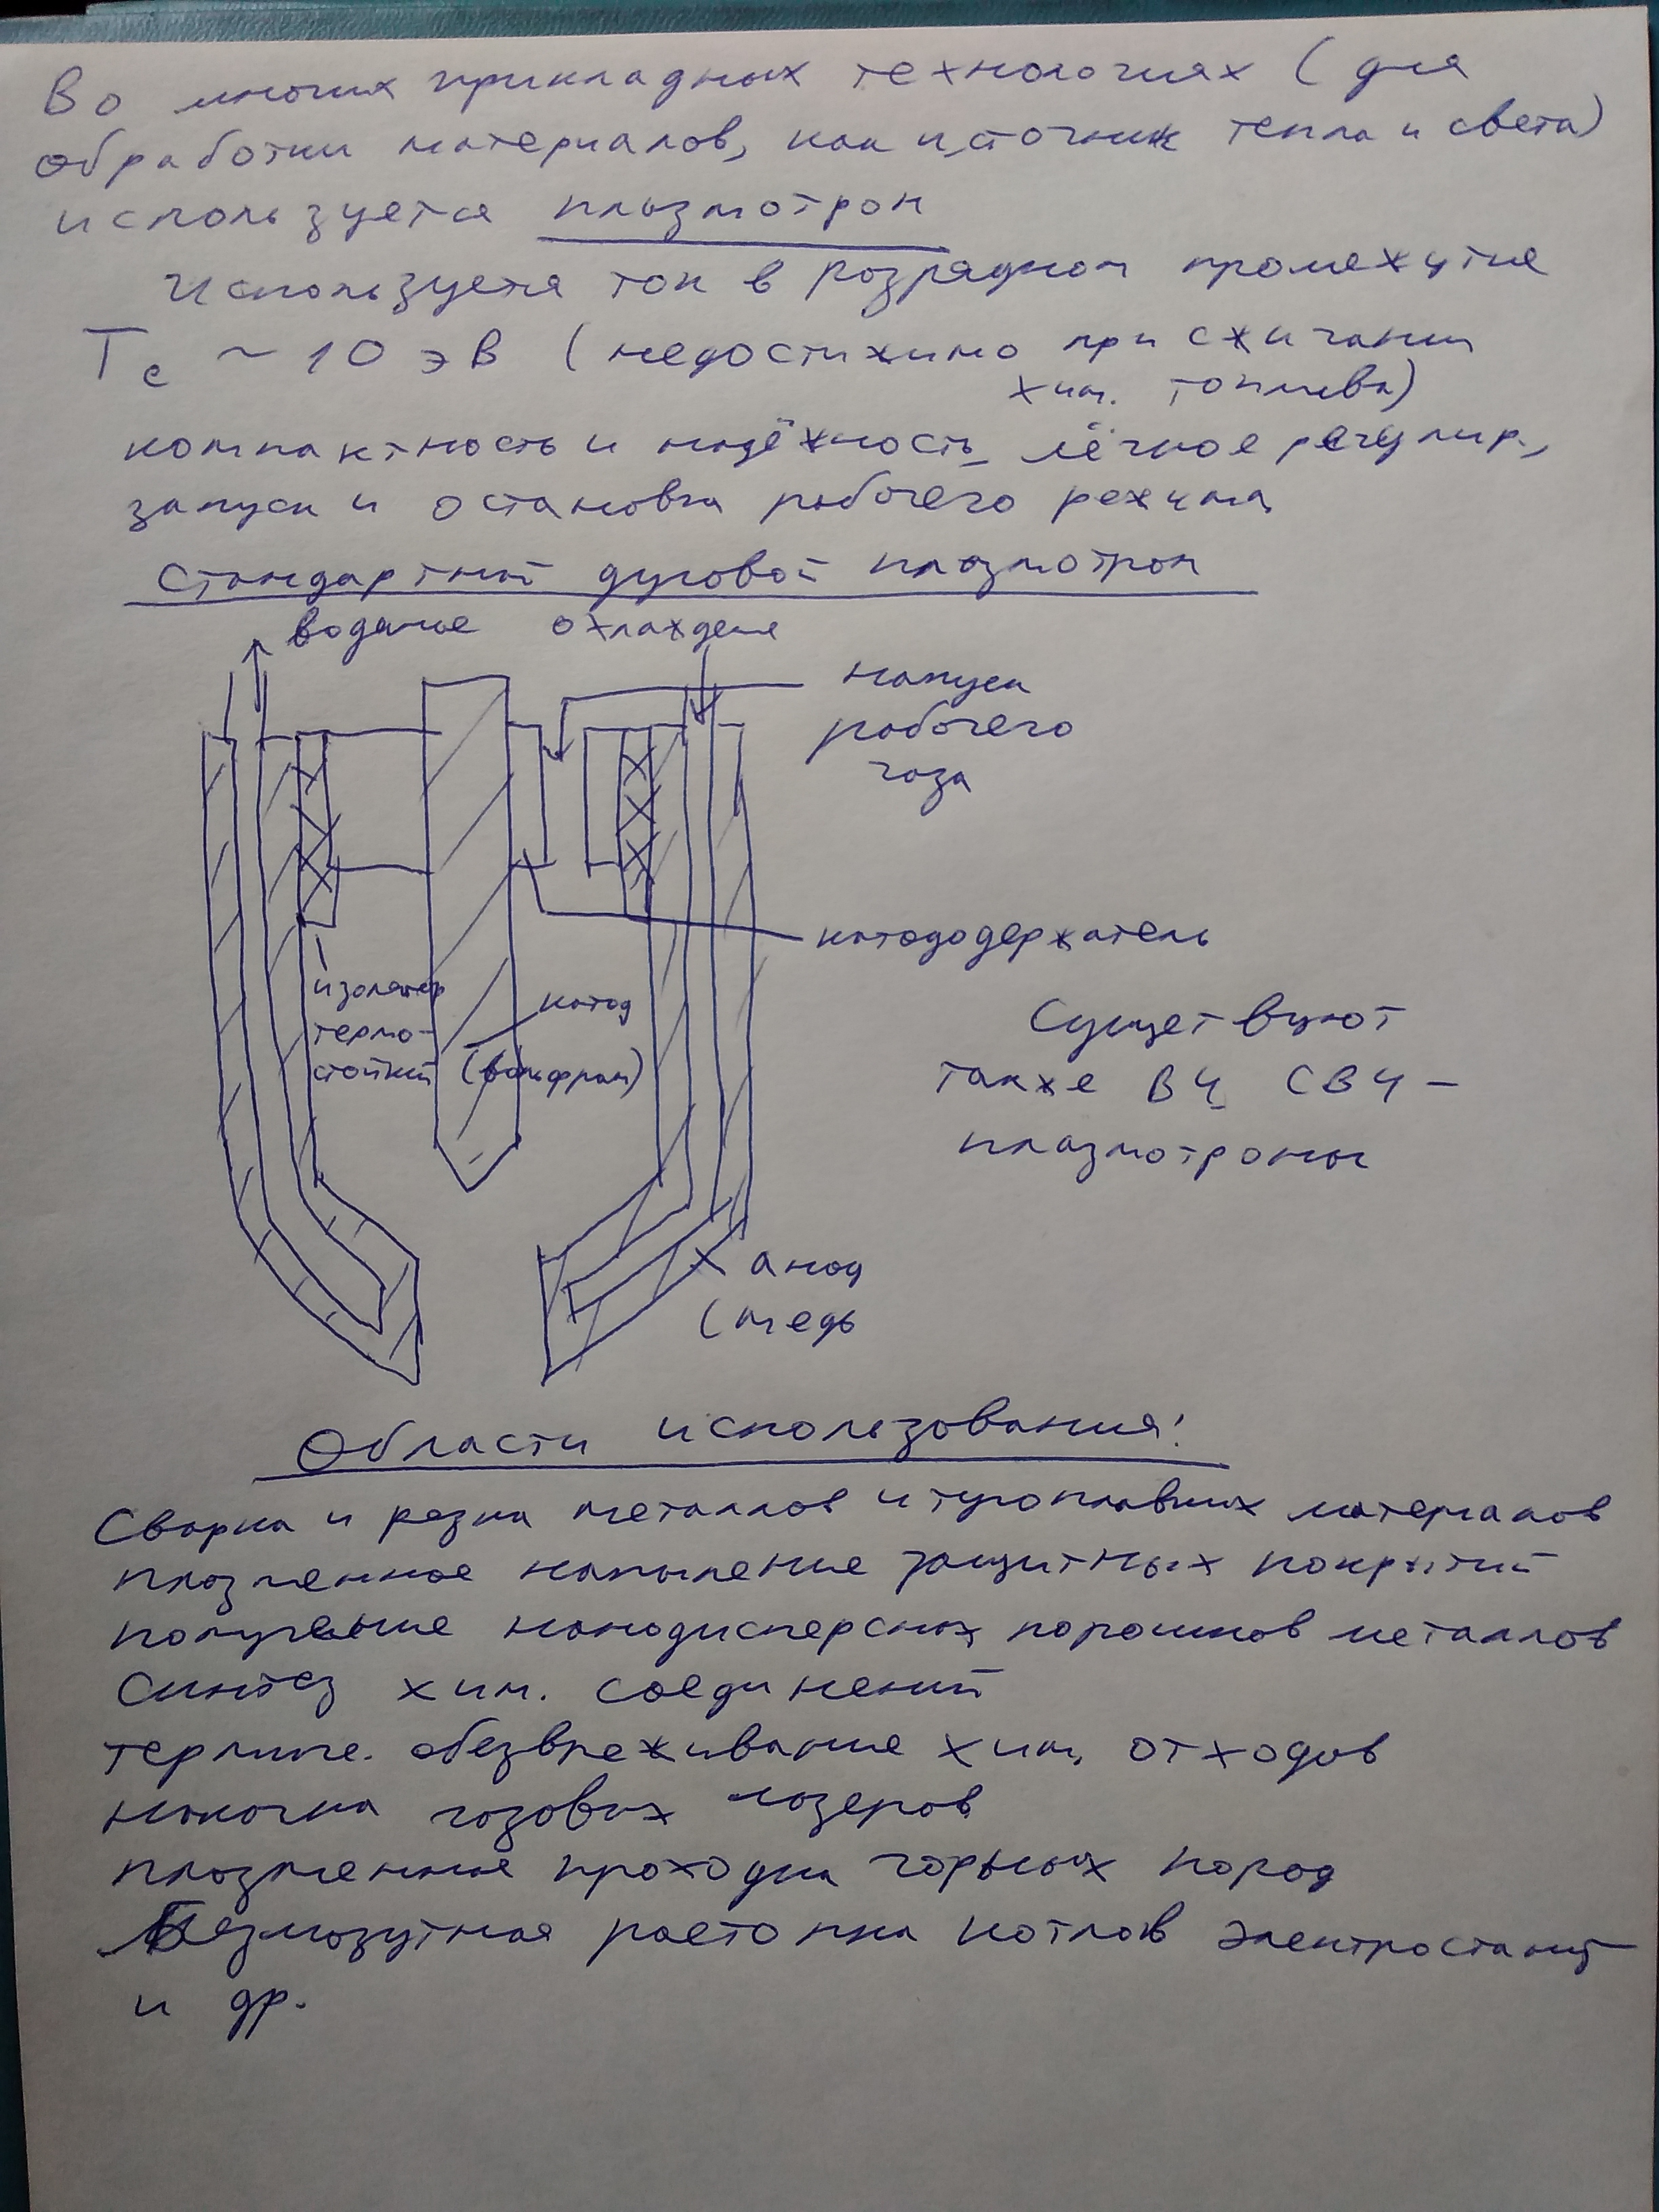 Во многих прикладных технологиях (для
обработки материалов, как источник тепла и света)
используется плазмотрон
Используется ток в разрядном промежутке
Te ~ 10 эВ (недостижимо при сжигании
хим. топлива)
компактность и надёжность, лёгкое регулир.,
запуск и остановка рабочего режима
Стандартный дуговой плазмотрон
водяное охлаждение
напуск
рабочего
газа
катододержатель
изолятор
термо-
стойкий
катод
(вольфрам)
Существуют
также ВЧ, СВЧ -
плазмотроны
анод
(медь
Области использования:
Сварка и резка металлов и тугоплавких материалов
плазменное напыление защитных покрытий
получение нанодисперсных порошков металлов
Синтез хим. соединений
термич. обезвреживание хим. отходов
накачка газовых лазеров
плазменная проходка горных пород
Безмазутная растопка котлов электростанций
и др.